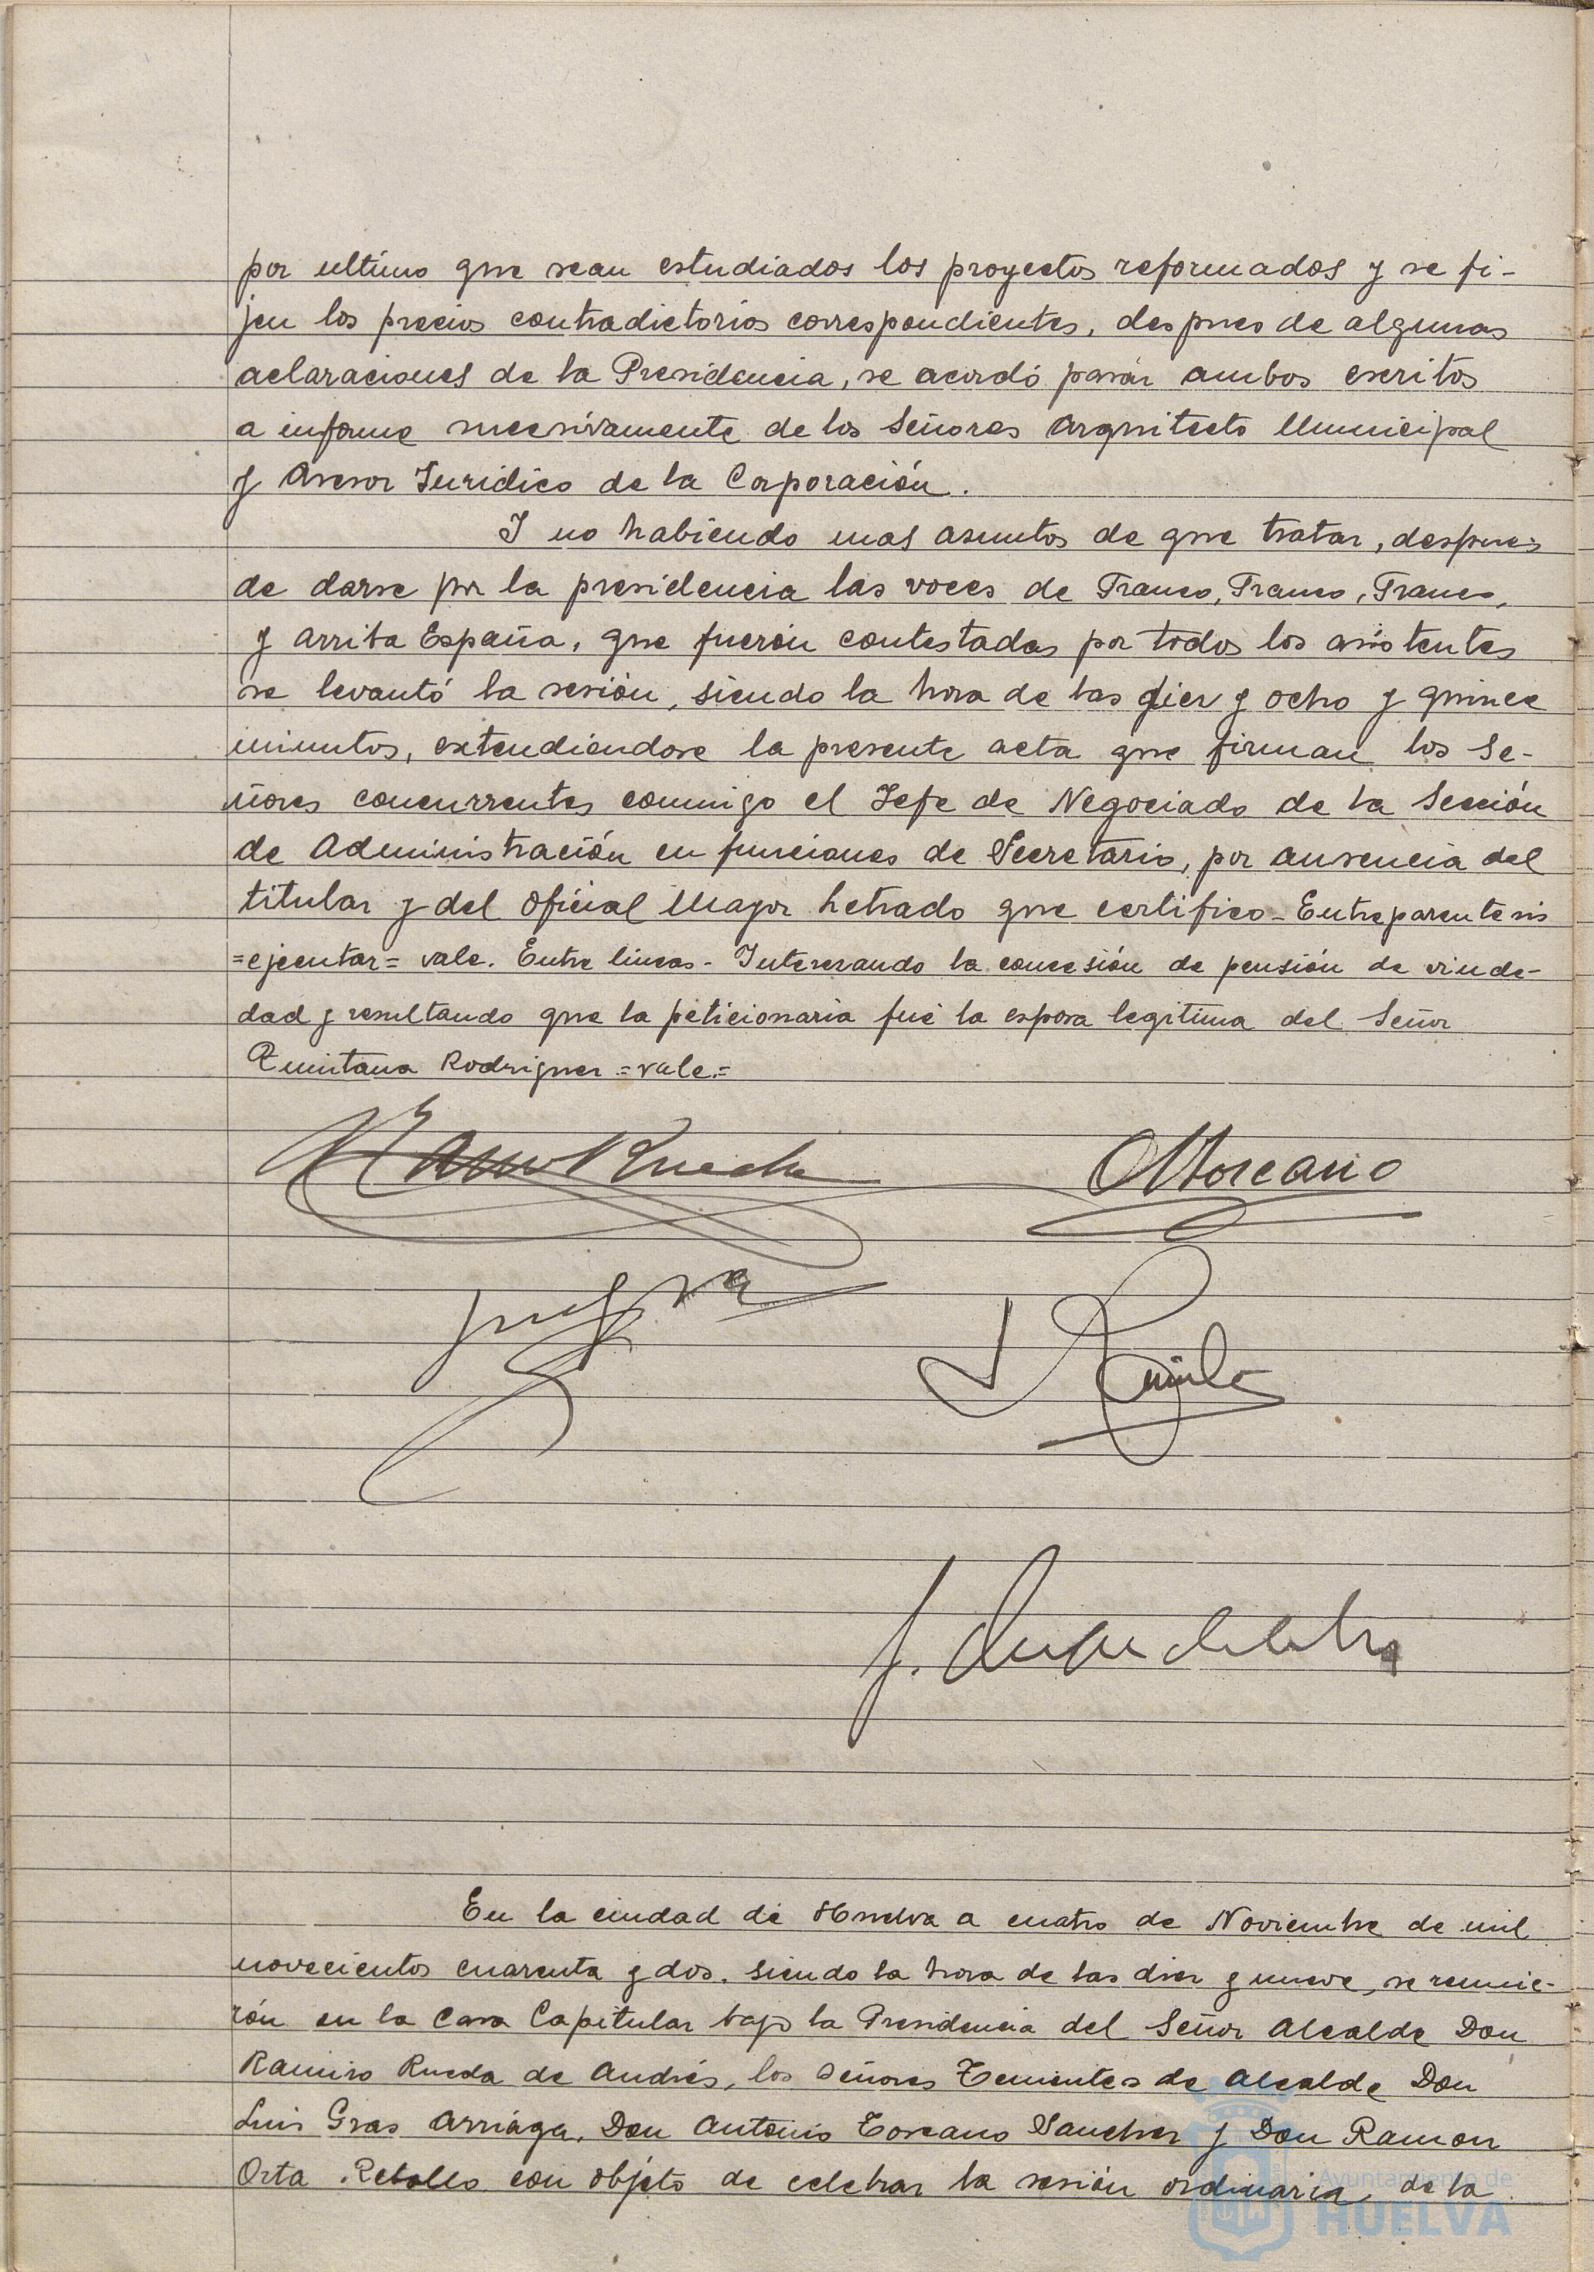 por ultimo que sean estudiados los proyectos reformados y se fi-
jen los precios contradictorios correspondientes, despues de algunas
aclaraciones de la Presidencia, se acordó pasár ambos escritos
a informe sucesivamente de los Señores Arquitecto Municipal
y Asesor Juridico de la Corporación.
Y no habiendo mas asuntos de que tratar, despues
de darse por la presidencia las voces de Franco, Franco, Franco,
y Arriba España, que fuerón contestadas por todos los asistentes
se levantó la sesión, siendo la hora de las diez y ocho y quince
minutos, extendiendose la presente acta que firman los Se-
ñores concurrentes conmigo el Jefe de Negociado de la Sección
de Administración en funciones de Secretario, por ausencia del
titular y del Oficial Mayor Letrado que certifico - Entreparentesis
=ejecutar= vale. Entre lineas - Interesando la concesión de pensión de viude-
dad y resultando que la peticionaria fué la esposa legitima del Señor
Quintana Rodriguez =vale.=
Ramiro Rueda
A Toscano
En la ciudad de Huelva a cuatro de Noviembre de mil
novecientos cuarenta y dos. siendo la hora de las diez y nueve, se reunie-
rón en la Casa Capitular bajo la Presidencia del Señor Alcalde Don
Ramiro Rueda de Andrés, los Señores Tenientes de Alcalde Don
Luis Gras Arriaga, Don Antonio Toscano Sanchez y Don Ramon
Orta Rebollo con objeto de celebrar la sesión ordinaria, de la
Ayuntamiento de
HUELVA